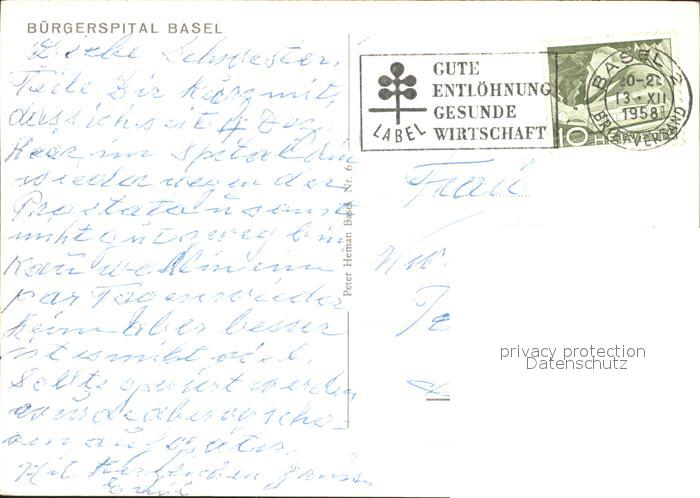 BÜRGERSPITAL BASEL
Liebe Schwester,
Teile Dir kurz mit,
dass ich seit 4 Dag
hear im Spital bin
wieder wegen der
Prostata u sonst
niht guts weg bin
Kan wohl in ein
par Tagen wieder
heim Aber besser
ist es niht viel.
Sollte operiert werden
wurde aber verscho-
ben auf später.
Mit herzlichen Grüss
Emil
Peter Heman Basel Nr. 6
LABEL
GUTE
ENTLÖHNUNG
GESUNDE
WIRTSCHAFT
BASEL 2
13. XII
1958
BRIEFVERSAND
10 HELVETIA
Frau
privacy protection
Datenschutz